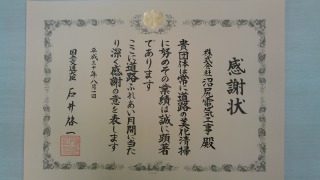 感謝状
株式会社沼尻電気工事 殿
貴団体は常に道路の美化清掃
に努めその業績は誠に顕著
であります
ここに道路ふれあい月間に当た
り深く感謝の意を表します
平成三十年八月一日
国土交通大臣 石井啓一